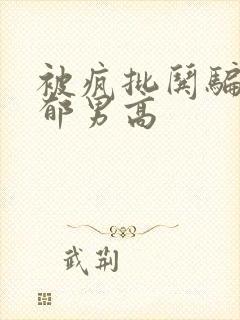 被疯批阴骗
郁男高
武荆